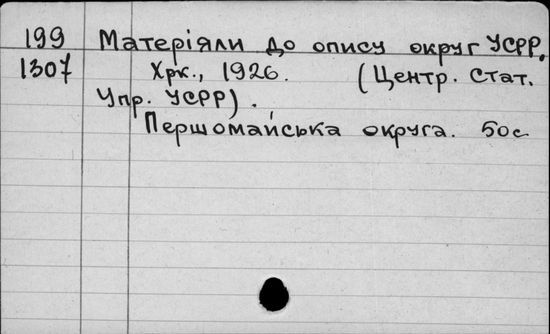 199 Матеріяли до опису округ УСРР.
1307 Хрк., 1926. (Центр. Стат.
Упр. УСРР).
Першомайська округа. 50с